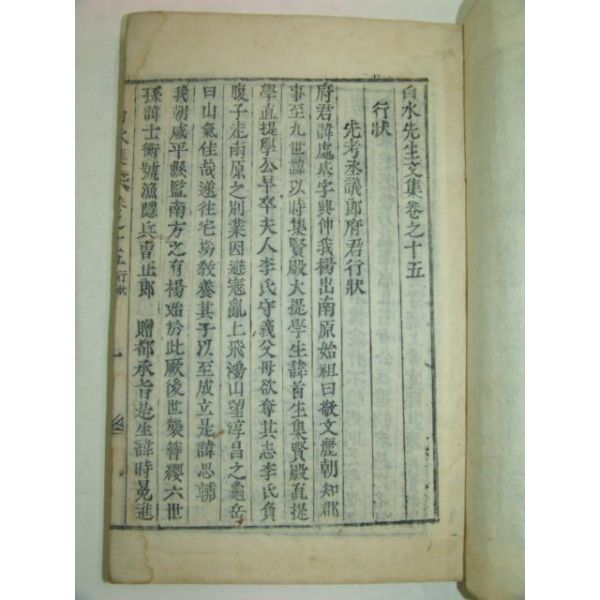 白水先生文集卷之十五
行狀
先考丞議郎府君行狀
府君諱處基字興仲我楊出南原始祖曰敬文麗朝知郡
事至九世諱以時集賢殿大提學生諱首生集賢殿直提
學直提學公早卒夫人李氏守義父母欲奪其志李氏負
腹子走南原之別業因避寇亂上飛鴻山望淳昌之龜岳
曰山氣佳哉遂往宅焉敎養其子以至成立是諱思輔
我朝咸平縣監南方之有楊始於此厥後世襲簪纓六世
孫諱士衡號漁隱兵曹正郎 贈都承旨是生諱時冕進
卷之十五 行狀